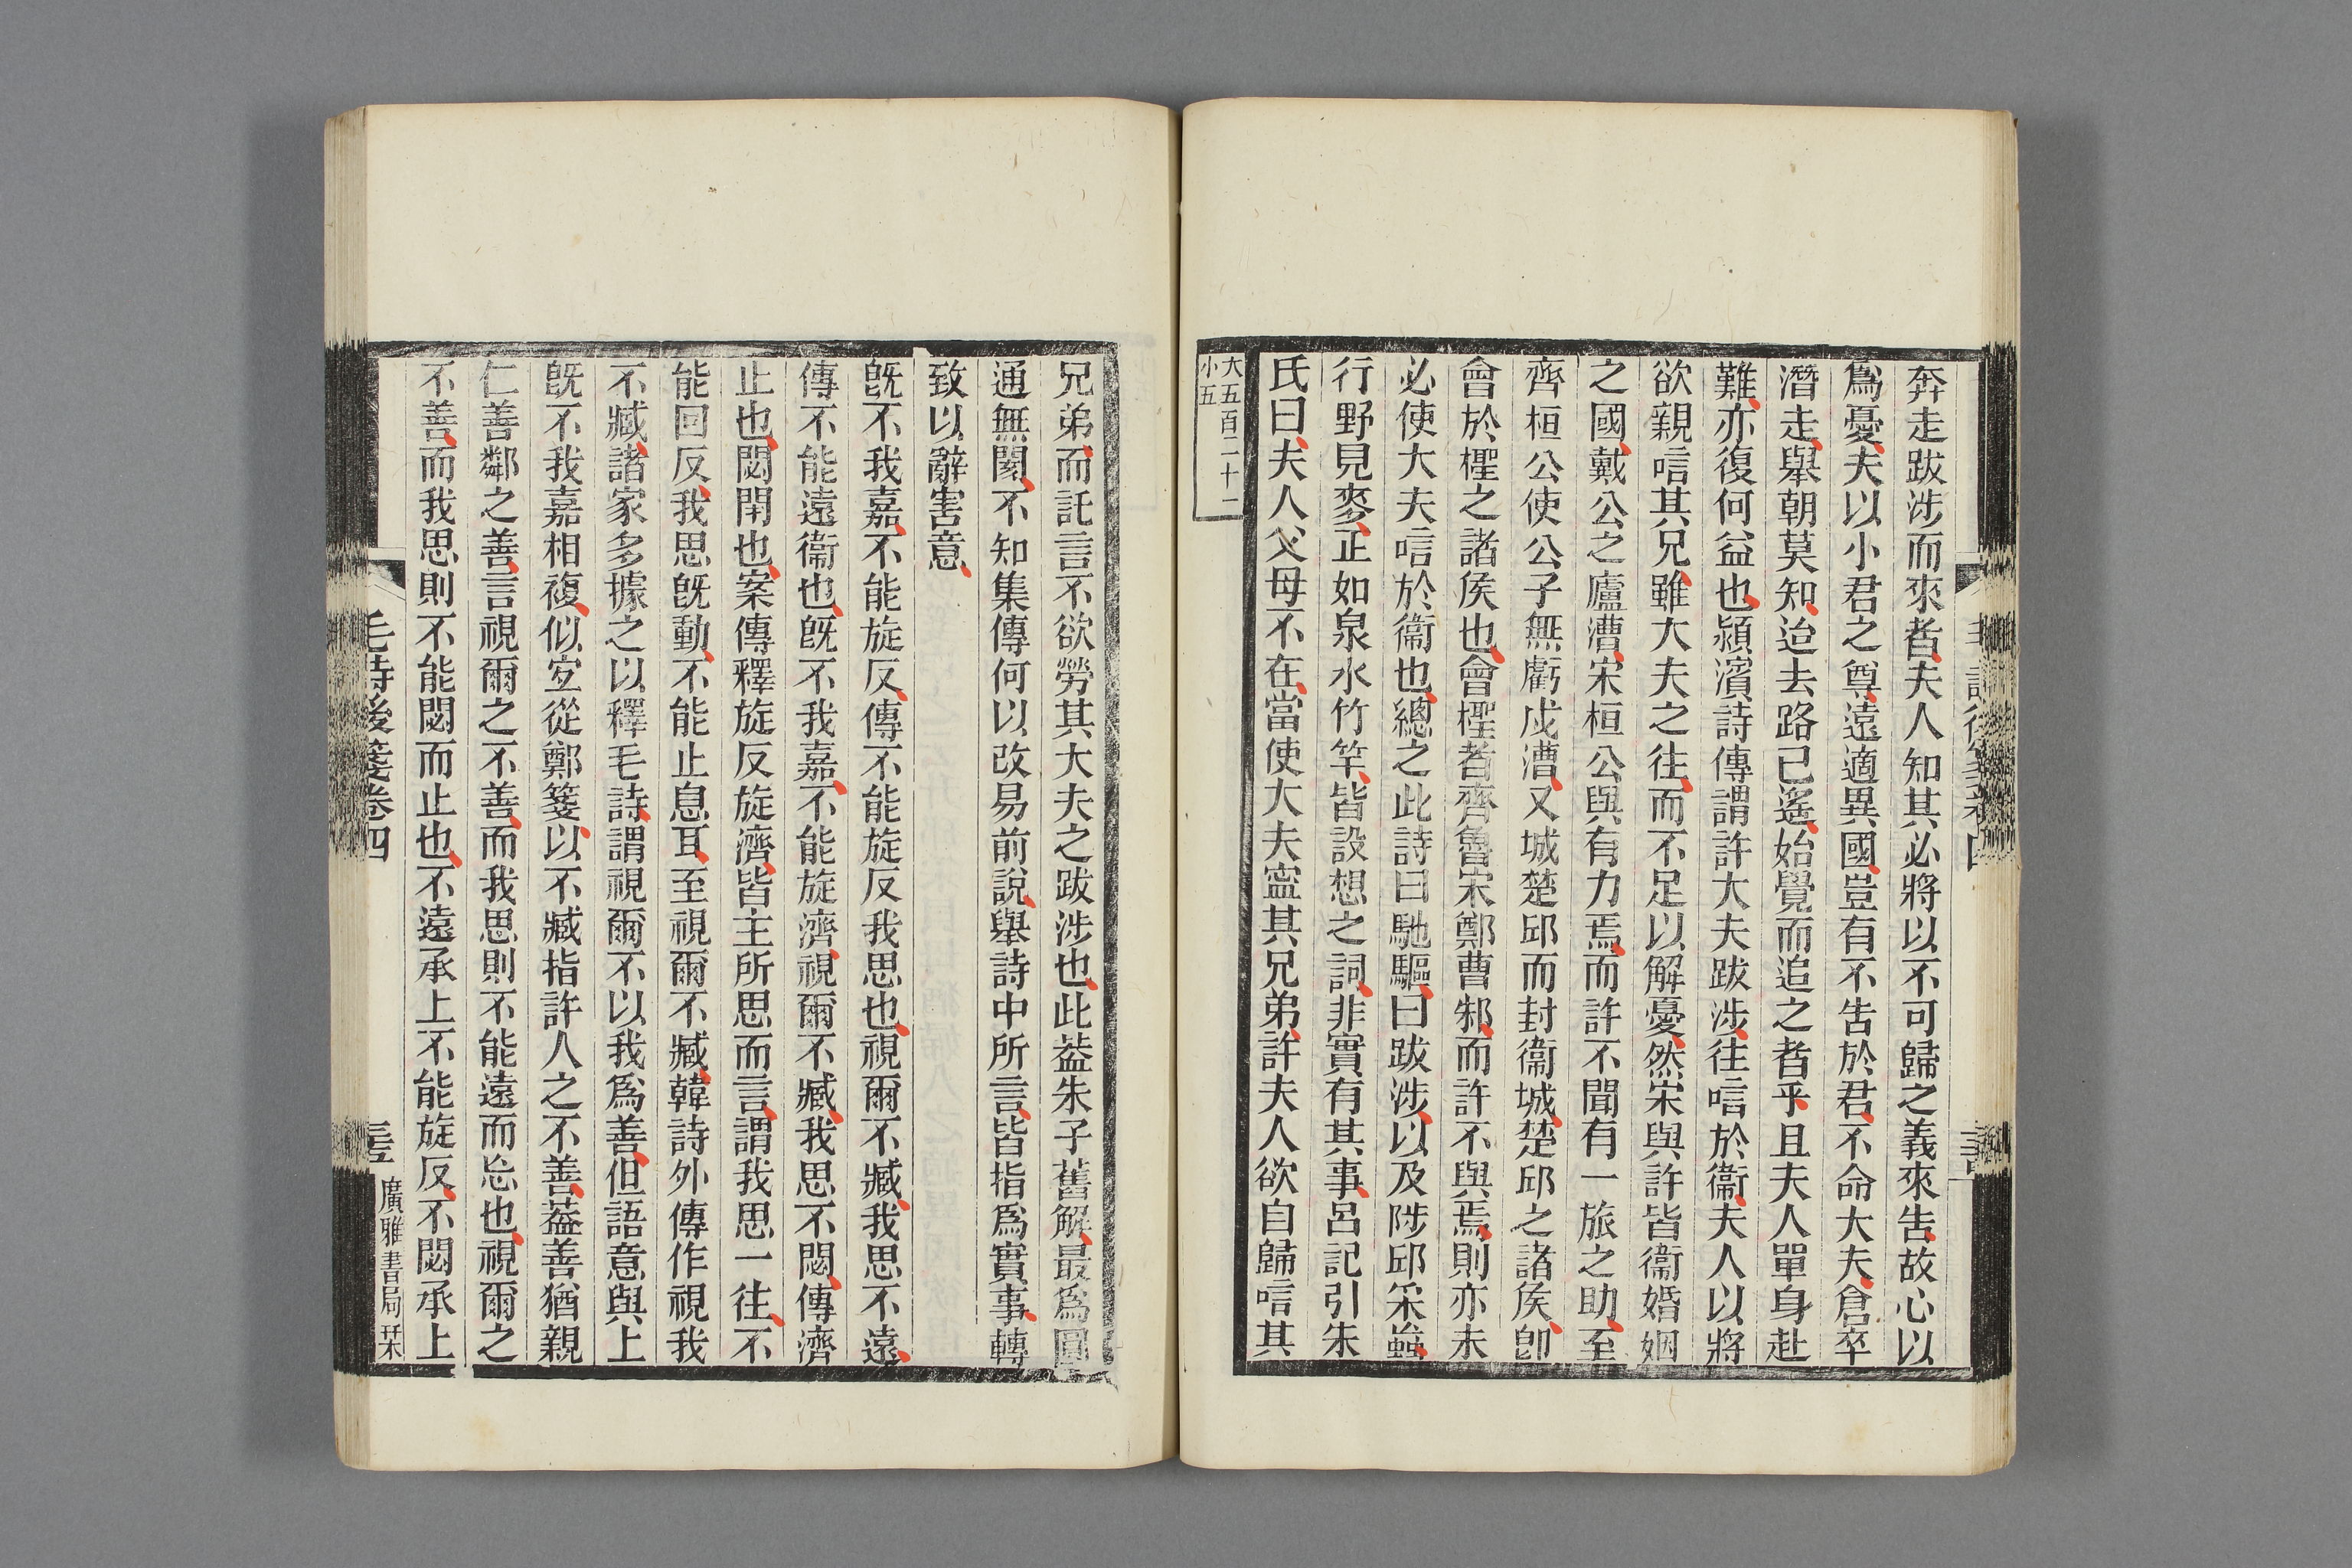 奔走跋涉而來者夫人知其必將以不可歸之義來告故心以
爲憂夫以小君之尊遠適異國豈有不告於君不命大夫倉卒
潛走舉朝莫知迨去路已遙始覺而追之者乎且夫人單身赴
難亦復何益也潁濱詩傳謂許大夫跋涉往唁於衞夫人以將
欲親唁其兄雖大夫之往而不足以解憂然宋與許皆衞婚姻
之國戴公之廬漕宋桓公與有力焉而許不聞有一旅之助至
齊桓公使公子無虧戍漕又城楚邱而封衞城楚邱之諸侯卽
會於檉之諸侯也會檉者齊魯宋鄭曹邾而許不與焉則亦未
必使大夫唁於衞也總之此詩曰馳驅曰跋涉以及陟邱采蝱
行野見麥正如泉水竹竿皆設想之詞非實有其事呂記引朱
氏曰夫人父母不在當使大夫寍其兄弟許夫人欲自歸唁其
大五百二十一
小五
兄弟而託言不欲勞其大夫之跋涉也此葢朱子舊解最爲圓
通無閡不知集傳何以改易前說舉詩中所言皆指爲實事轉
致以辭害意
旣不我嘉不能旋反傳不能旋反我思也視爾不臧我思不遠
傳不能遠衞也旣不我嘉不能旋濟視爾不臧我思不閟傳濟
止也閟閉也案傳釋旋反旋濟皆主所思而言謂我思一往不
能回反我思旣動不能止息耳至視爾不臧韓詩外傳作視我
不臧諸家多據之以釋毛詩謂視爾不以我爲善但語意與上
旣不我嘉相複似宐從鄭箋以不臧指許人之不善葢善猶親
仁善鄰之善言視爾之不善而我思則不能遠而忘也視爾之
不善而我思則不能閟而止也不遠承上不能旋反不閟承上
毛詩後箋卷四
三五
廣雅書局栞